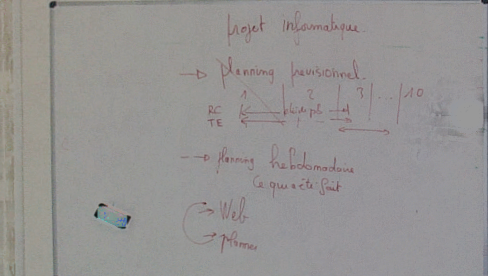 projet informatique.
→ planning previsionnel.
1 2 3 ... 10
RC
TE
→ planning hebdomadaire
Ce qui a été fait
Web